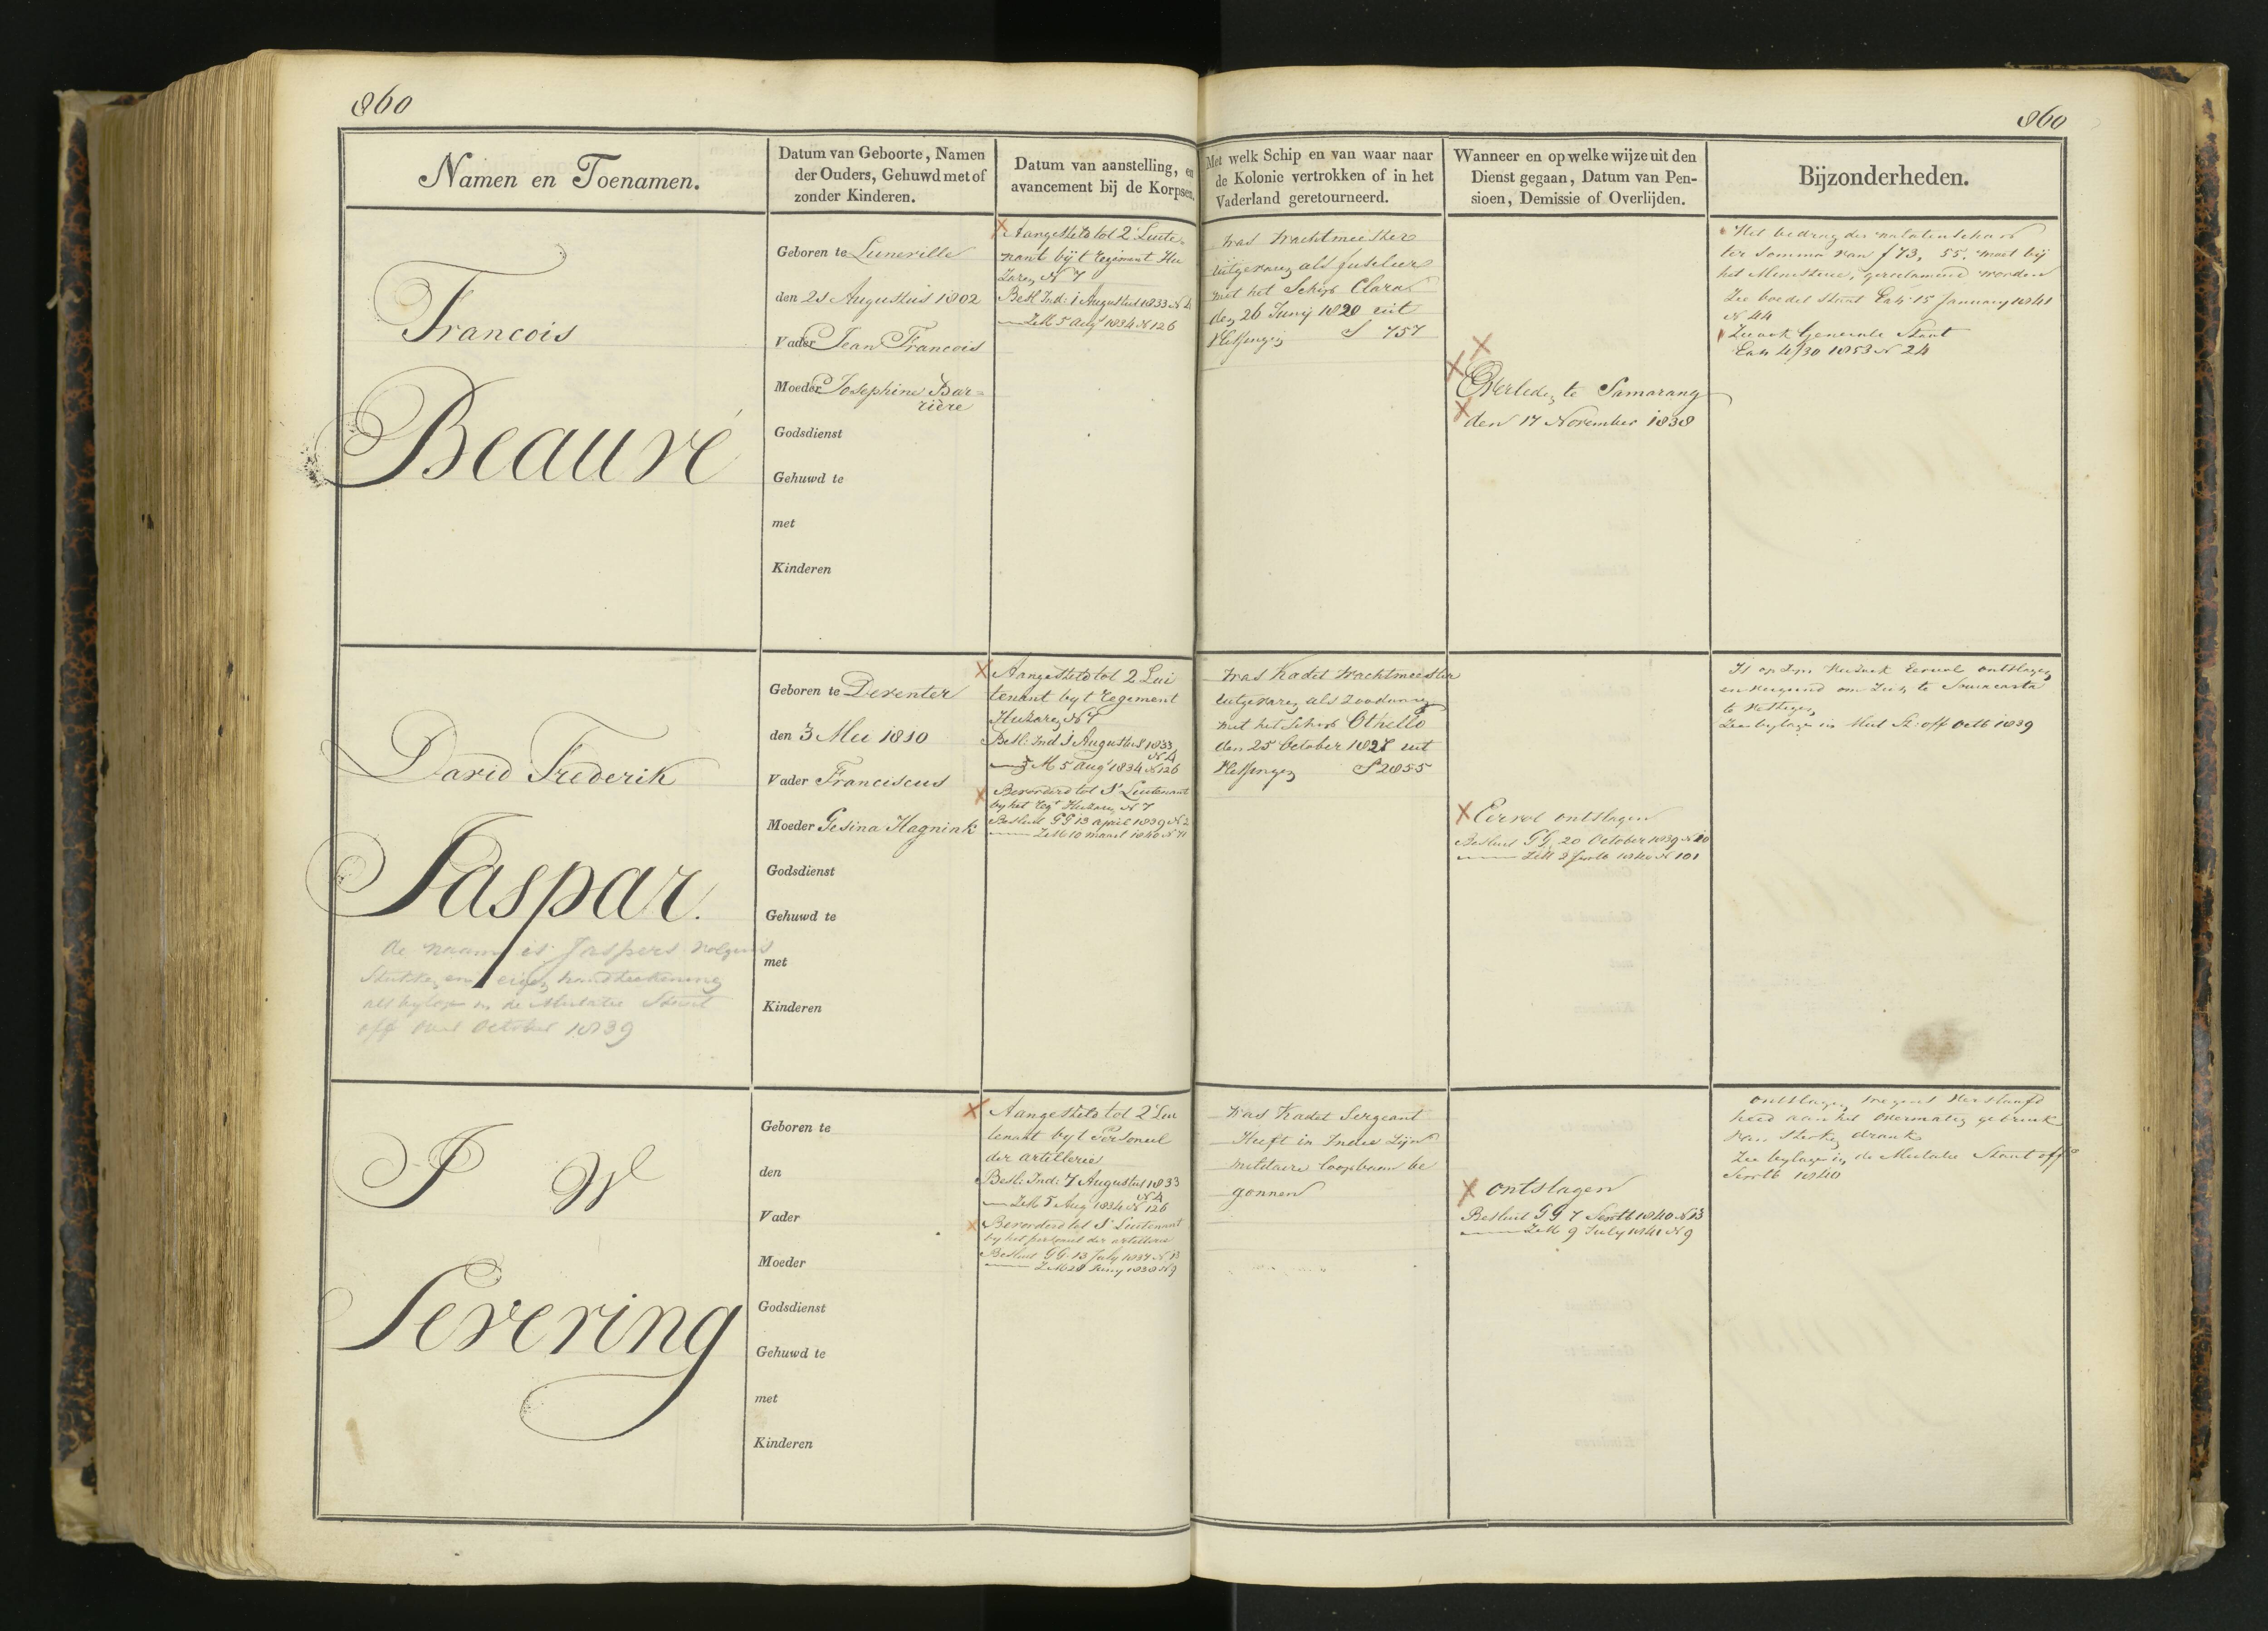 860
860
Namen en Toenamen.
Datum van Geboorte, Namen
der Ouders, Gehuwd met of
zonder Kinderen.
Datum van aanstelling, en
avancement bij de Korpsen.
Met welk Schip en van waar naar
de Kolonie vertrokken of in het
Vaderland geretourneerd.
Wanneer en op welke wijze uit den
Dienst gegaan, Datum van Pen-
sioen, Demissie of Overlijden.
Bijzonderheden.
Francois
Beauré
Geboren te Luneville
den 21 Augustus 1802
Vader Jean Francois
Moeder Josephine Bar=
rière
Godsdienst
Gehuwd te
met
Kinderen
Aangesteld tot 2e Luite-
nant bijt Regiment Hu
zaren N 7
Besl Ind: 1 Augustus 1833 N 4
— ZM 5 Augt 1834 N 126
was wachtmeester
uitgevaren als fuselier
met het Schip Clara
den 26 Junij 1820 uit
Vlissingen S 757
Overleden te Samarang
den 17 November 1838
Het bedrag der nalatenschap
ter somma van f 73, 55, moet bij
het Ministerie, gereclameerd worden
Zie boedel Staat 15 January 1841
N 44
Zie ook Generale Staat
4/30 1853 N 24
David Frederik
Jaspar.
de naam is Jaspers volgens
Stukken en eigen handteekening
als bylage in de Mutatie Staat
off October 1839
Geboren te Deventer
den 3 Mei 1810
Vader Franciscus
Moeder Gesina Hagnink
Godsdienst
Gehuwd te
met
Kinderen
Aangesteld tot 2 Lui
tenant byt Regement
Huzaren N 7
Besl: Ind 1 Augustus 1833
N 4
— ZM 5 Augt 1834 N 126
Bevorderd tot 1e Luitenant
by het Regt Huzaren N 7
Besluit GG 13 april 1839 N 2
— ZM 10 maart 1840 N 71
was Kadet Wachtmeester
uitgevaren als zoodanig
met het Schip Othello
den 25 October 1827 uit
Vlissingen S 2055
Eervol ontslagen
Besluit GG 20 October 1839 N 20
— ZM 2 Septb 1840 N 101
Is op zyn verzoek Eervol ontslagen
en vergund om zich te Souracarta
te vestigen,
Zie bylage in Mut St: off Octb 1839
J W
Severing
Geboren te
den
Vader
Moeder
Godsdienst
Gehuwd te
met
Kinderen
Aangesteld tot 2e Lui
tenant byt Personeel
der artillerie
Besl: Ind: 7 Augustus 1833
N 4
— ZM 5 Aug 1834 N 126
Bevorderd tot 1e Luitenant
by het personeel der artillerie
Besluit GG 13 July 1837 N 13
— ZM 28 Juny 1838 N 9
was Kadet Sergeant
Heeft in Indie Zijne
militaire loopbaan be
gonnen
ontslagen
Besluit GG 7 Septb 1840 N 13
— ZM 9 July 1841 N 9
ontslagen, wegens Verslaafd
heid aan het overmatig gebruik
van Sterken drank
Zie bylage in de Mutatie Staat offn
Septb 1840